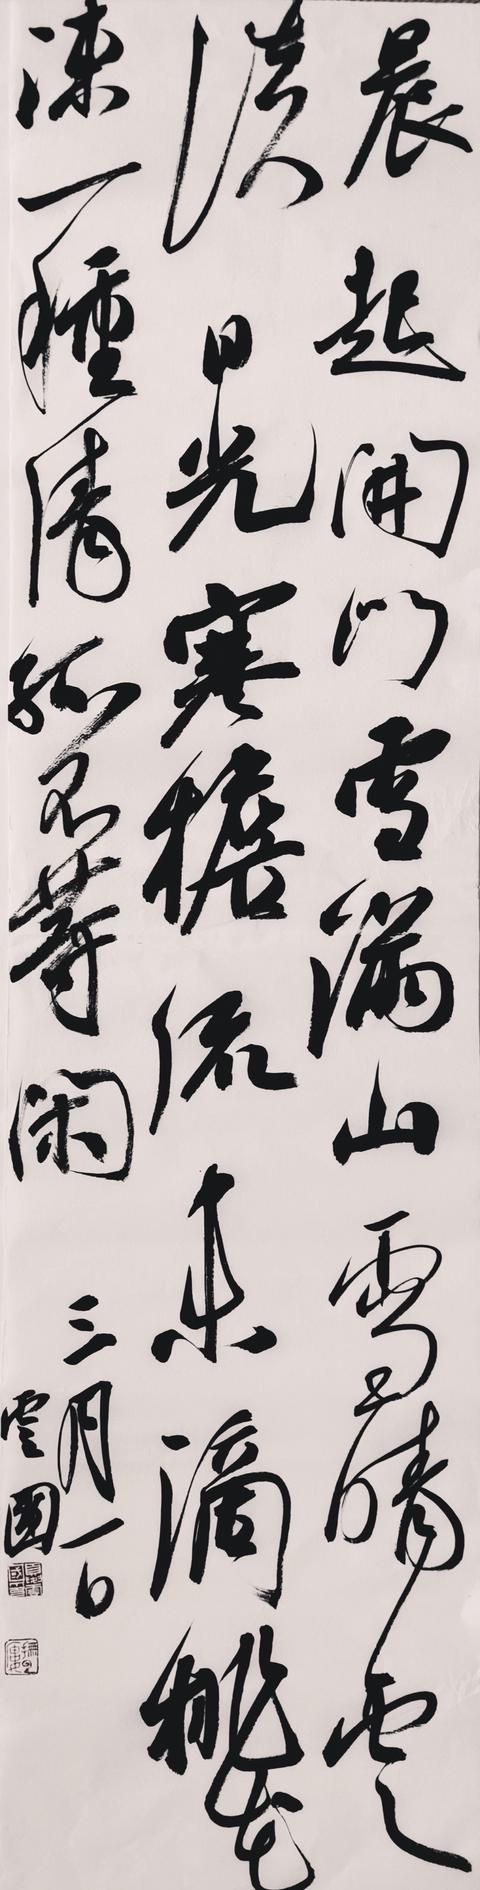 晨起開門雪滿山雪晴雲
淡日光寒檐流未滴梅花
凍一種清孤不等閑
三月一日
雲國